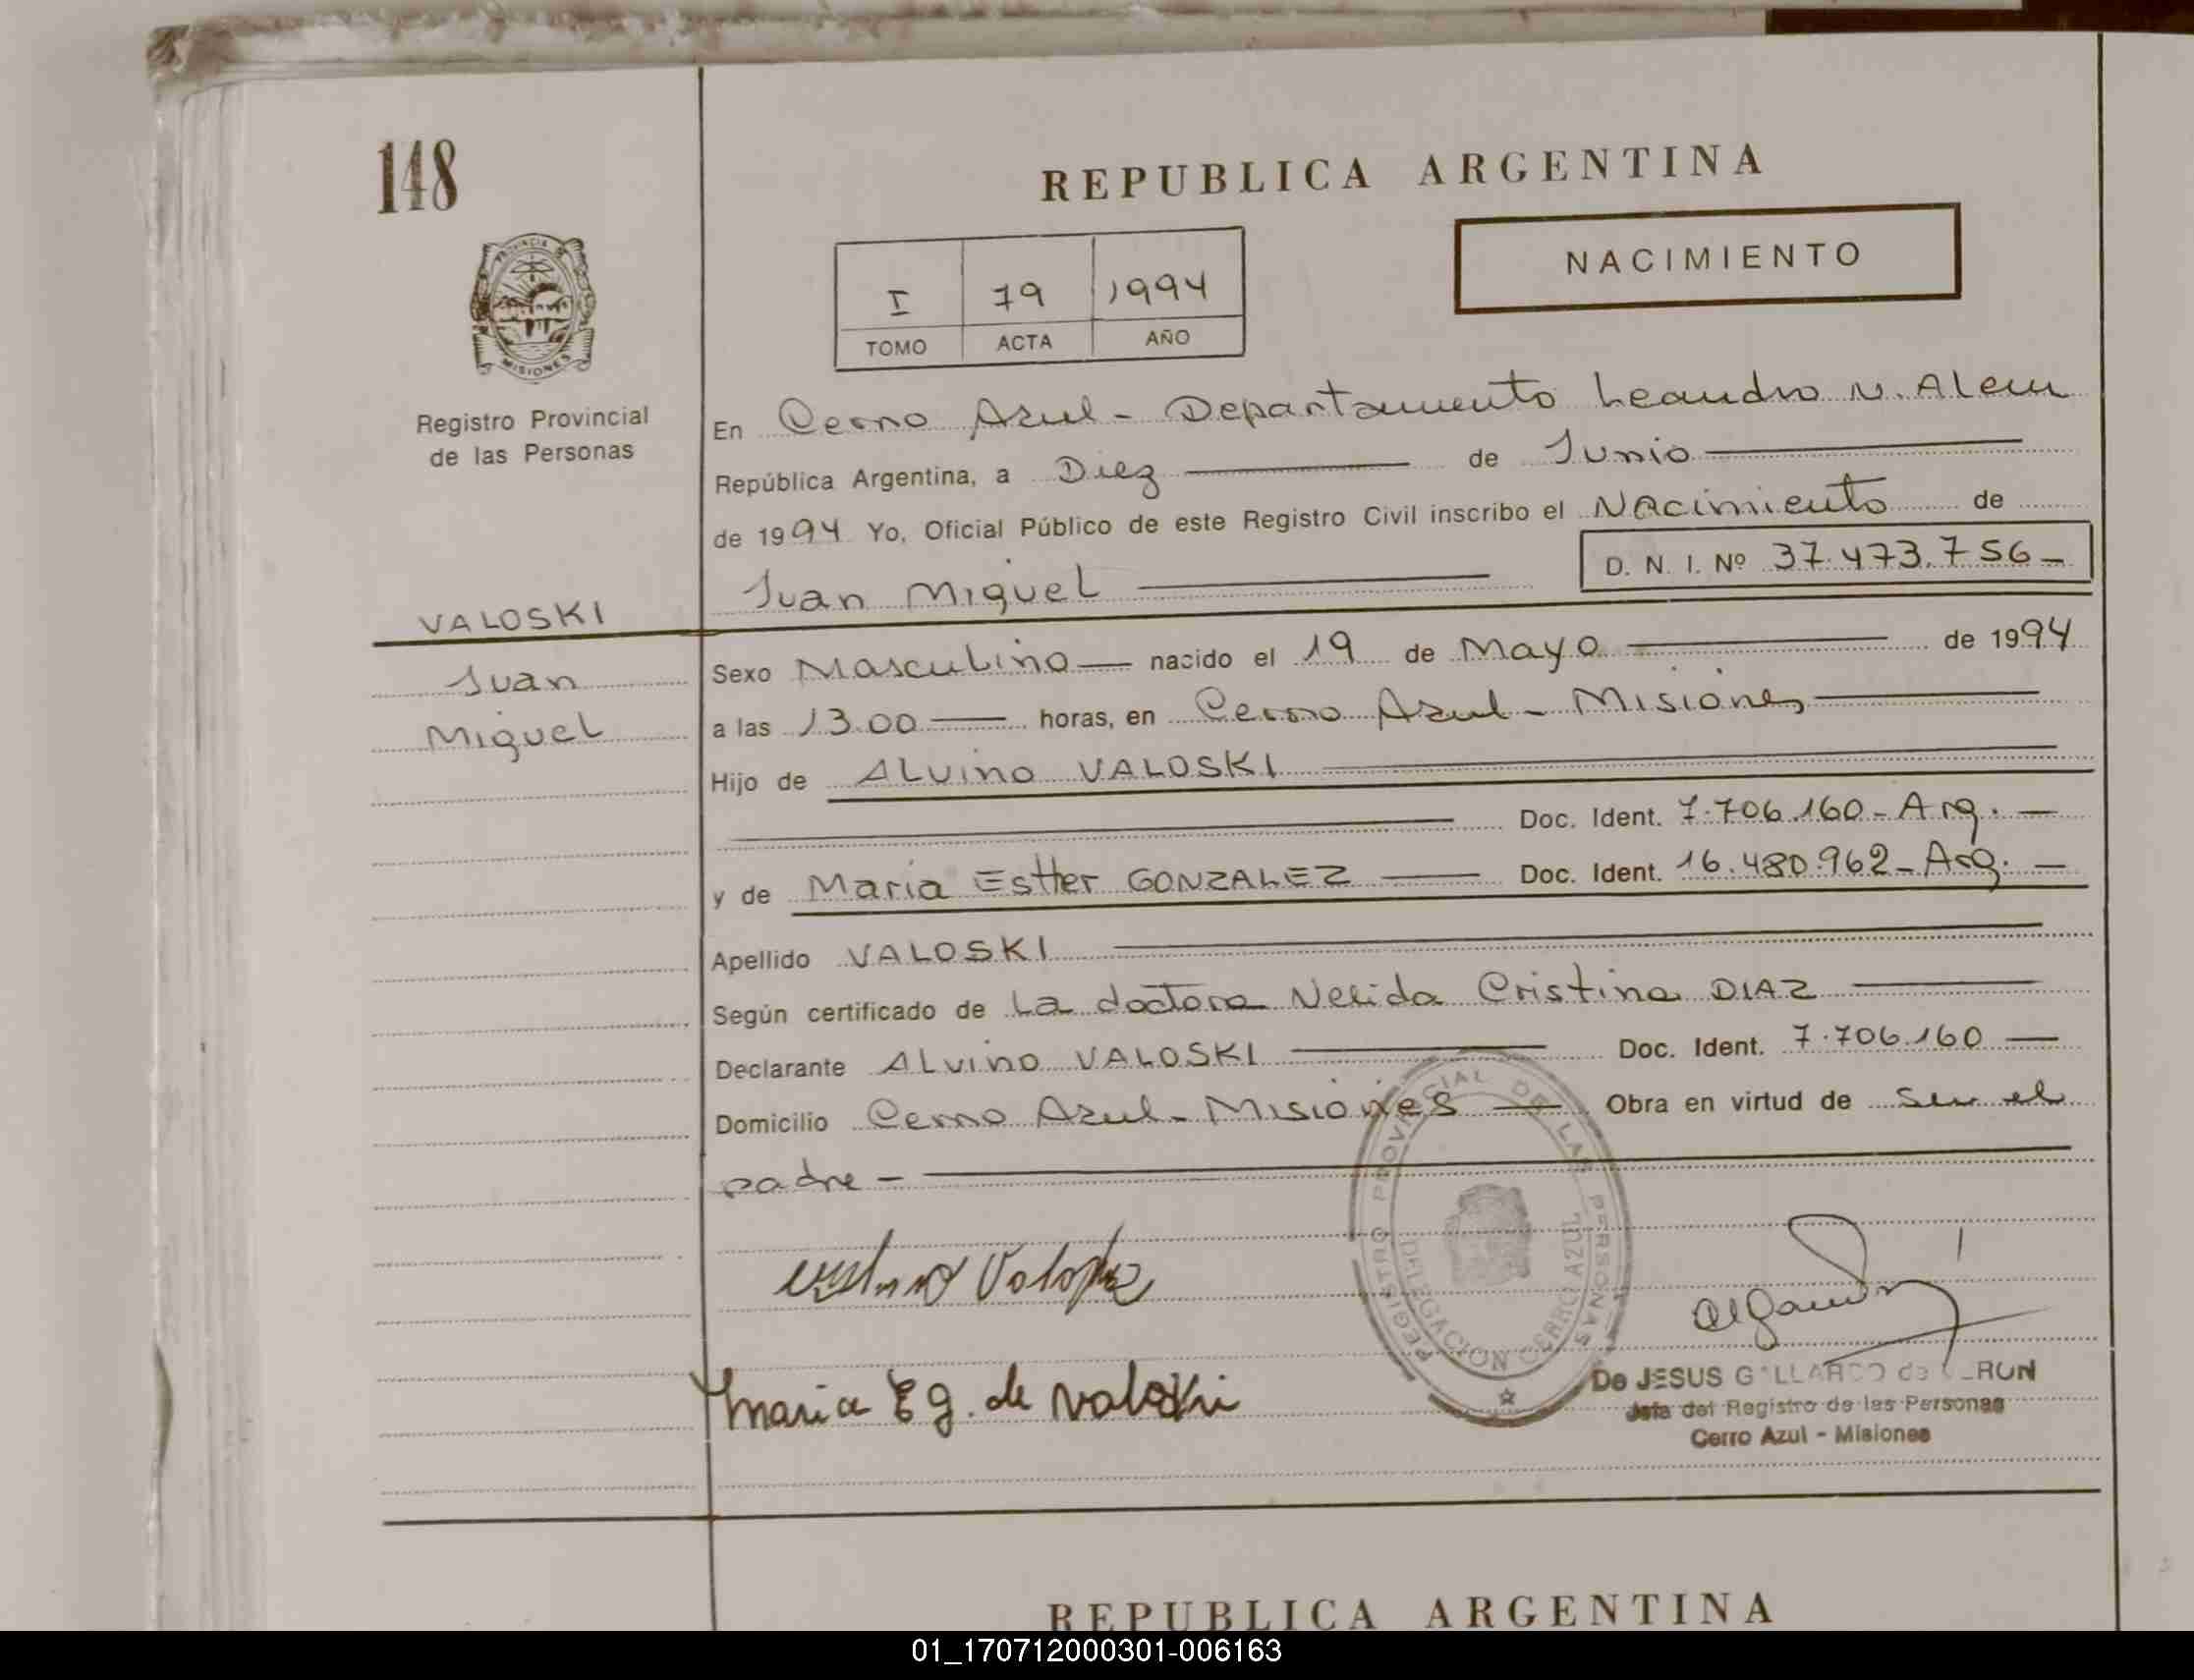 148
REPUBLICA ARGENTINA
NACIMIENTO
I 79 1994
TOMO ACTA AÑO
PROVINCIA DE
MISIONES
Registro Provincial
de las Personas
En Cerro Azul - Departamento Leandro N. Alem
República Argentina, a Diez de Junio
de 1994 Yo, Oficial Público de este Registro Civil inscribo el Nacimiento de
Juan Miguel D. N. I. Nº 37.473.756-
VALOSKI
Juan
Miguel
Sexo Masculino nacido el 19 de Mayo de 1994
a las 13.00 horas, en Cerro Azul - Misiones
Hijo de ALvino VALOSKI
Doc. Ident. 7.706.160 - Arg.
y de Maria Esther GONZALEZ Doc. Ident. 16.480.962 - Arg.
Apellido VALOSKI
Según certificado de La doctora Nelida Cristina DIAZ
Declarante ALvino VALOSKI Doc. Ident. 7.706.160
Domicilio Cerro Azul - Misiones Obra en virtud de ser el
padre -
REGISTRO PROVINCIAL DE LAS PERSONAS
DELEGACION CERRO AZUL
Maria E g. de Valoski
De JESUS GALLARDO de
Jefa del Registro de las Personas
Cerro Azul - Misiones
REPUBLICA ARGENTINA
01_170712000301-006163